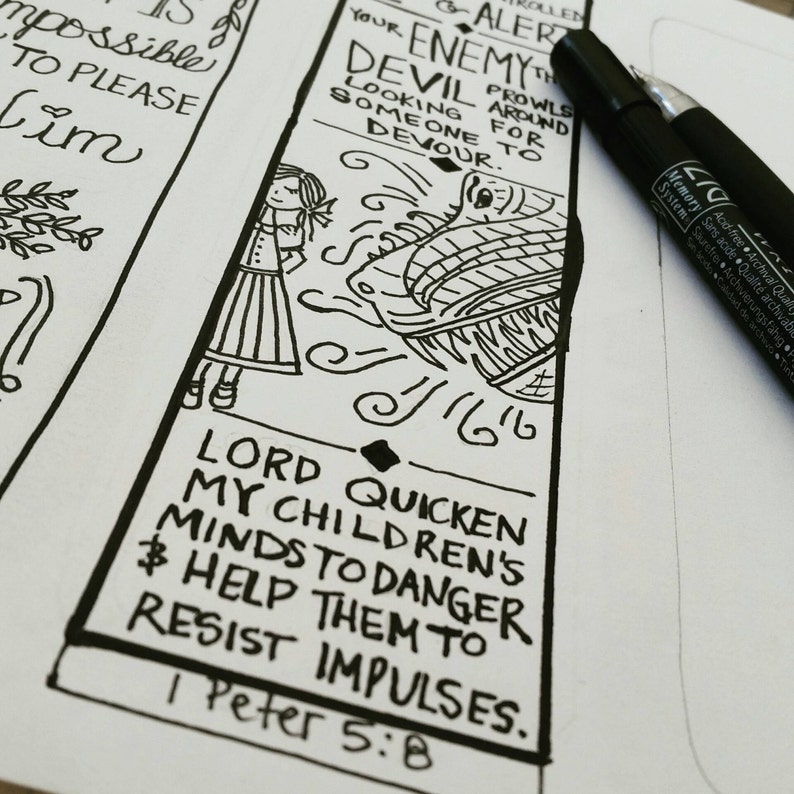 IS
mpossible
TO PLEASE
Him
& ALERT
YOUR ENEMY THE
DEVIL PROWLS
AROUND
LOOKING FOR
SOMEONE TO
DEVOUR.
LORD QUICKEN
MY CHILDREN'S
MINDS TO DANGER
& HELP THEM TO
RESIST IMPULSES.
1 Peter 5:8
Memory
System
Acid-free • Archival Quality
Sans acide • Qualité archivable
Säurefrei • Archivierungsfähig
Sin ácido • Calidad de archivo